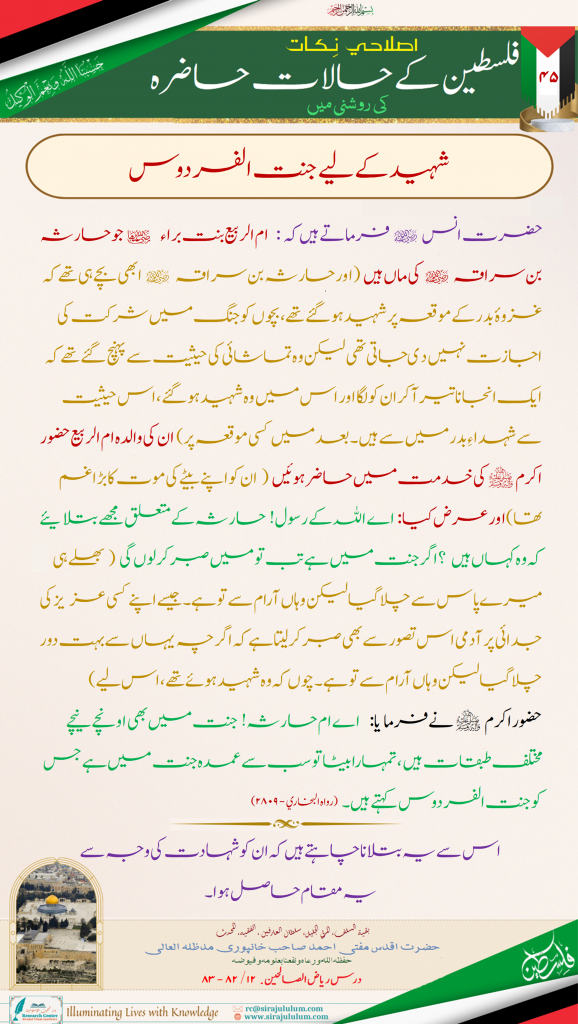 بسم اللہ الرحمن الرحیم
حَسْبُنَا اللّٰهُ وَنِعْمَ الْوَكِيْل
۴۵
اصلاحی نِکات
فلسطین کے حالات حاضرہ
کی روشنی میں
شہید کے لیے جنت الفردوس
حضرت انس رضی اللہ عنہ فرماتے ہیں کہ: ام الربیع بنت براء رضی اللہ عنہا جو حارثہ
بن سراقہ رضی اللہ عنہ کی ماں ہیں (اور حارثہ بن سراقہ رضی اللہ عنہ ابھی بچے ہی تھے کہ
غزوۂ بدر کے موقعہ پر شہید ہو گئے تھے، بچوں کو جنگ میں شرکت کی
اجازت نہیں دی جاتی تھی لیکن وہ تماشائی کی حیثیت سے پہنچ گئے تھے کہ
ایک انجانا تیر آکر ان کو لگا اور اس میں وہ شہید ہو گئے، اس حیثیت
سے شہداءِ بدر میں سے ہیں۔ بعد میں کسی موقعہ پر) ان کی والدہ ام الربیع حضور
اکرم ﷺ کی خدمت میں حاضر ہوئیں ( ان کو اپنے بیٹے کی موت کا بڑا غم
تھا) اور عرض کیا: اے اللہ کے رسول! حارثہ کے متعلق مجھے بتلایئے
کہ وہ کہاں ہیں؟ اگر جنت میں ہے تب تو میں صبر کرلوں گی ( بھلے ہی
میرے پاس سے چلا گیا لیکن وہاں آرام سے تو ہے۔ جیسے اپنے کسی عزیز کی
جدائی پر آدمی اس تصور سے بھی صبر کرلیتا ہے کہ اگرچہ یہاں سے بہت دور
چلا گیا لیکن وہاں آرام سے تو ہے۔ چوں کہ وہ شہید ہوئے تھے، اس لیے)
حضور اکرم ﷺ نے فرمایا: اے ام حارثہ! جنت میں بھی اونچے نیچے
مختلف طبقات ہیں، تمہارا بیٹا تو سب سے عمدہ جنت میں ہے جس
کو جنت الفردوس کہتے ہیں۔ (رواہ البخاري-۲۸۰۹)
اس سے یہ بتلانا چاہتے ہیں کہ ان کو شہادت کی وجہ سے
یہ مقام حاصل ہوا۔
بقیۃ السلف، سلطان العارفین، الفقیہ، المحدث
حضرت اقدس مفتی احمد صاحب خانپوری مدظلہ العالی
حفظہ اللہ ورعاہ ونفعنا بعلومہ وفیوضہ
درس ریاض الصالحین. ۱۲/ ۸۲ - ۸۳
فلسطین
Research Center
Illuminating Lives with Knowledge
rc@sirajululum.com
www.sirajululum.com